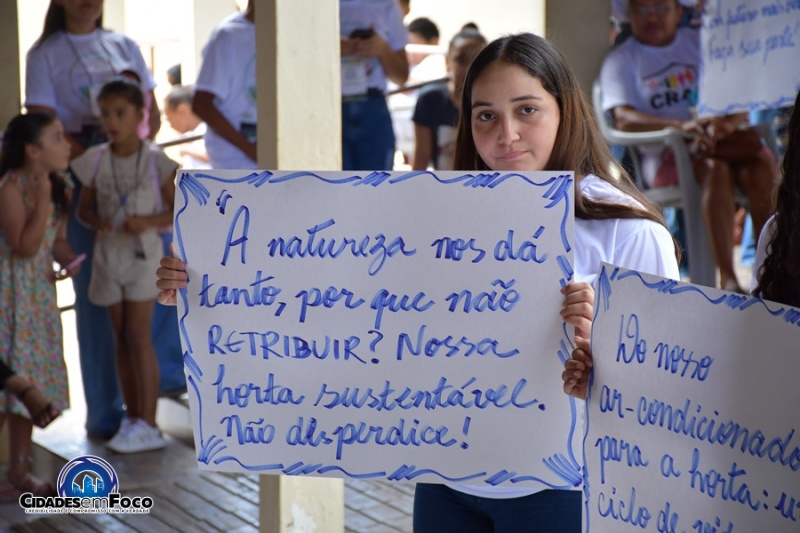 "A natureza nos dá
tanto, por que não
RETRIBUIR? Nossa
horta sustentável.
Não desperdice!
Do nosso
ar-condicionado
para a horta: u
ciclo de
Faça sua parte!
CRA
CIDADES EM FOCO
CREDIBILIDADE E COMPROMISSO COM A VERDADE